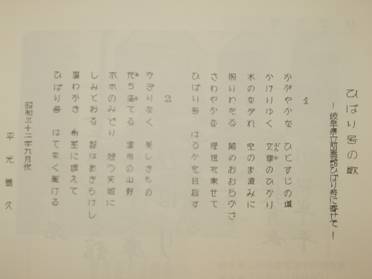 ひばり号の歌
―岐阜県立図書館ひばり号に寄せて―
1
かがやかな ひとすじの道
かけりゆく 文華のひかり
水のながれ 空のま澄みに
照りわたる 陽のおおらかさ
さわやかな 夢を乗せて
ひばり号 はるかを目指す
2
かぎりなく 美しきもの
充ち満てる 濃飛の山野
木木のみどり
しみとおる
夏わかき 希望に燃えて
ひばり号 はてなく駆ける
昭和三十二年六月作
平光善久